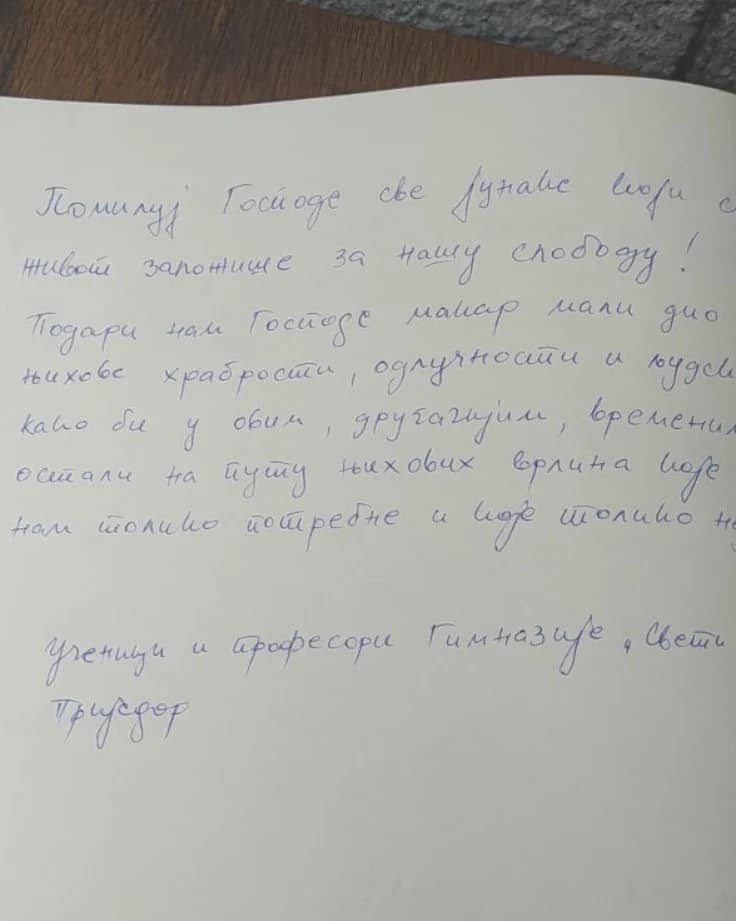 Помилуј Господе све јунаке који с
живот заложише за нашу слободу!
Подари нам Господе макар мали дио
њихове храбрости, одлучности и људск
како би у овим, другачијим, времени
остали на путу њихових врлина које
нам толико потребне и које толико не
Ученици и професори Гимназије „Свети
Приједор